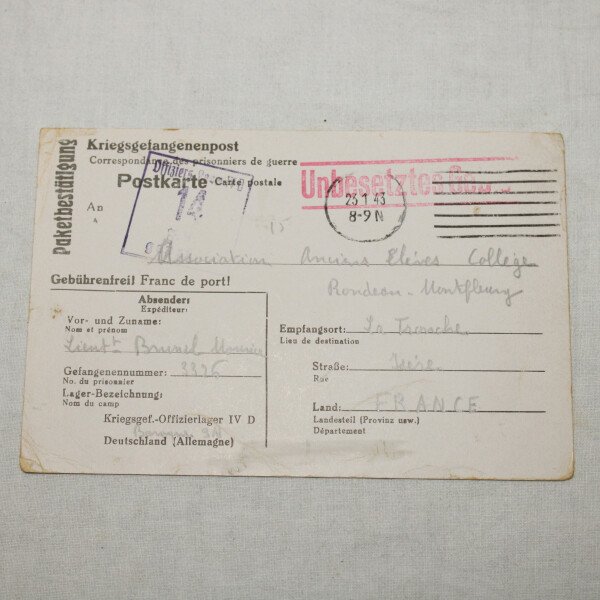 Paketbestätigung
Kriegsgefangenenpost
Correspondance des prisonniers de guerre
Postkarte Carte postale
An
14
Unbesetztes
23 1 43
8-9 N
15
Association Anciens Elèves Collège
Rondeau-Montfleury
Gebührenfrei! Franc de port!
Absender:
Expéditeur:
Vor- und Zuname:
Nom et prénom
Lieut Brunel Maurice
Gefangenennummer: 3326
No. du prisonnier
Lager-Bezeichnung:
Nom du camp
Kriegsgef.-Offizierlager IV D
Deutschland (Allemagne)
Empfangsort: La Tronche
Lieu de destination
Straße: Isère
Rue
Land: FRANCE
Landesteil (Provinz usw.)
Département